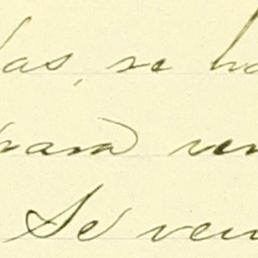 las, se ha
para ven
Se ven